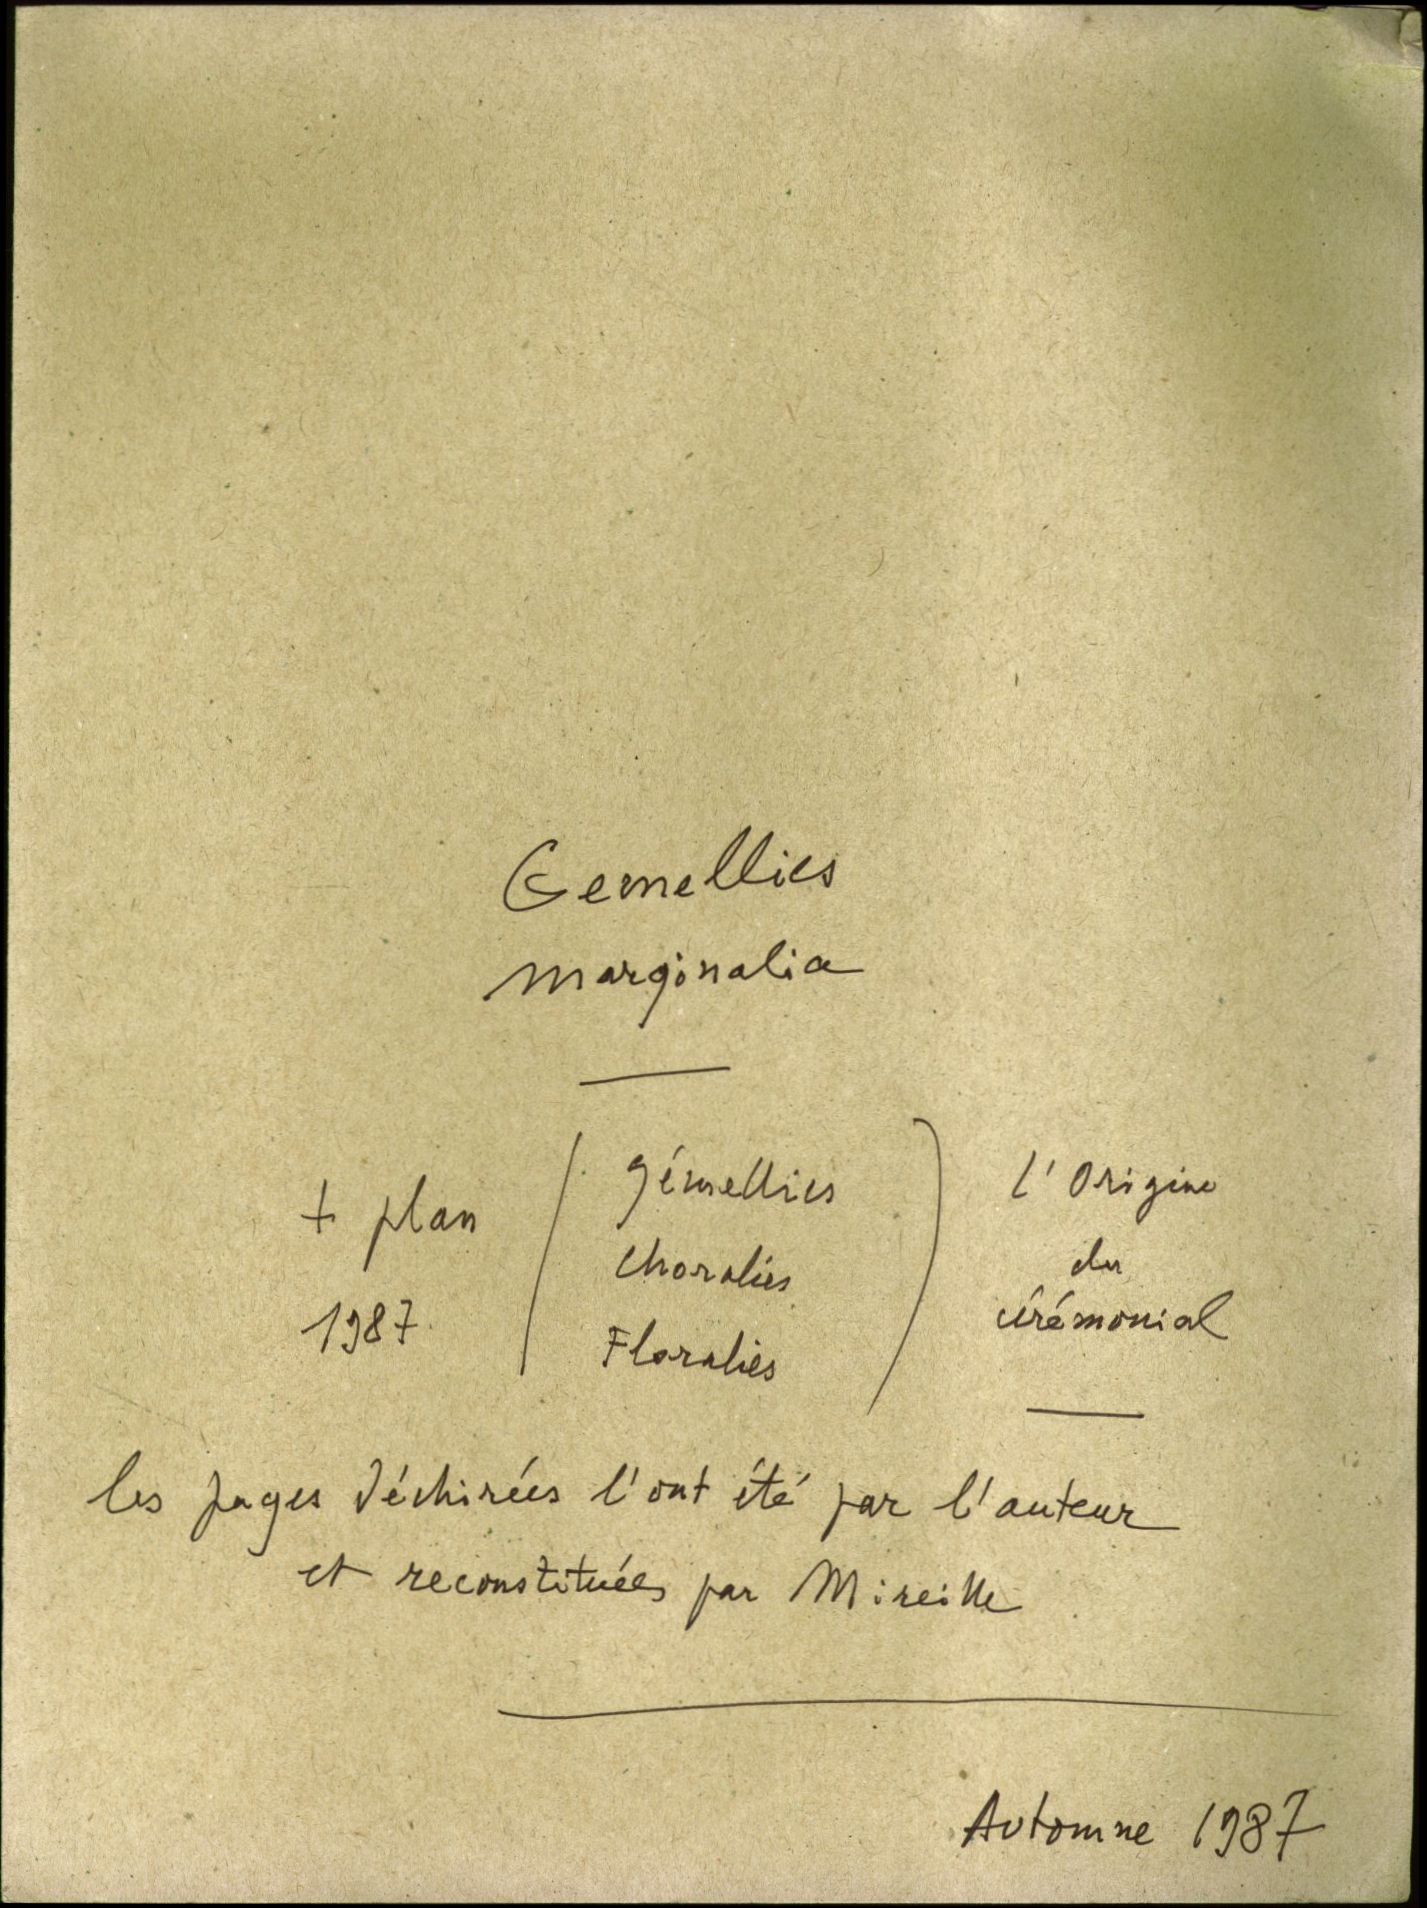 Gemellies
marginalia
+ plan
1987
( Gémellies
Choralies
Floralies )
l'Origine
du
cérémonial
les pages déchirées l'ont été par l'auteur
et reconstituées par Mireille
Automne 1987